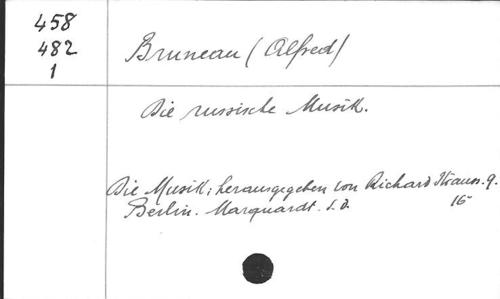 458
482
1
Bruneau (Alfred)
Die russische Musik.
Die Musik; herausgegeben von Richard Strauss. 9.
Berlin. Marquardt. s. d. 16°